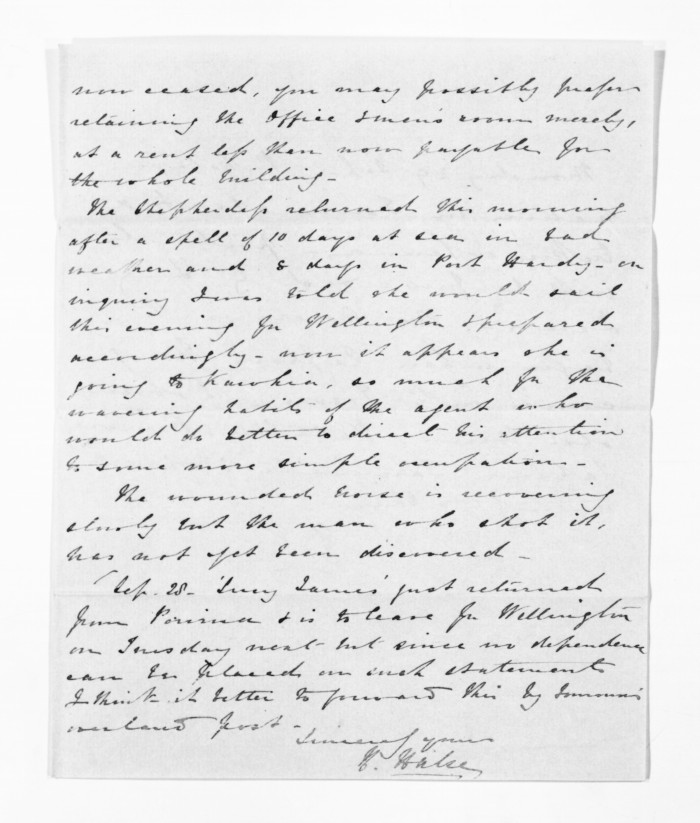 now ceased, you may possibly prefer
retaining the Office & men's room merely,
at a rent less than now payable for
the whole building -
The Shepherdess returned this morning
after a spell of 10 days at sea in bad
weather and 8 days in Port Hardy - on
inquiry I was told she would sail
this evening for Wellington & prepared
accordingly - now it appears she is
going to Kawhia, so much for the
wavering habits of the agent who
would do better to direct his attention
to some more simple occupation -
The wounded horse is recovering
slowly but the man who shot it,
has not yet been discovered -
Sep. 28 - 'Lucy James' just returned
from Porirua & is to leave for Wellington
on Tuesday next but since no dependence
can be placed on such statements
I think it better to forward this by tomorrow's
overland post -
Sincerely yours
H. Halse